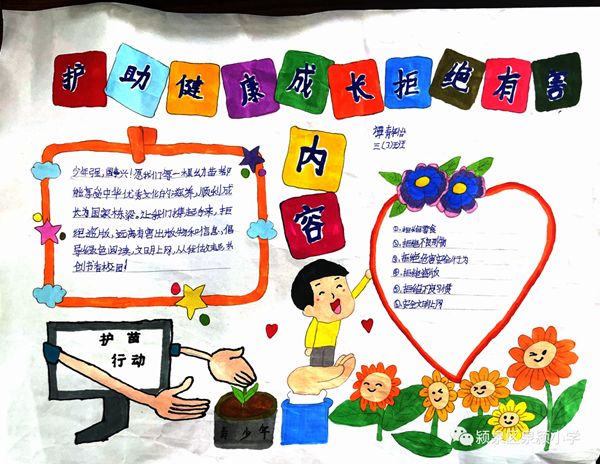 护助健康成长拒绝有害
内
容
三(7)班
少年强,国家兴!愿我们每一棵幼苗都
能享受中华优秀文化的滋养,顺利成
长为国家栋梁,让我们携起手来,拒
绝盗版,远离有害出版物和信息,倡
导绿色阅读,文明上网,从我做起
创书香校园!
①:拒绝零食
②:拒绝不良习惯
③:拒绝危害安全行为
④:拒绝盗版
⑤:拒绝不良习惯
⑥:安全文明上网
护苗
行动
青少年
颍泉区泉颍小学